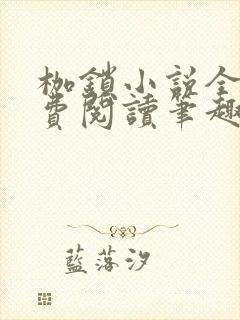 枷鎖小説全
費閱讀筆趣
藍落汐